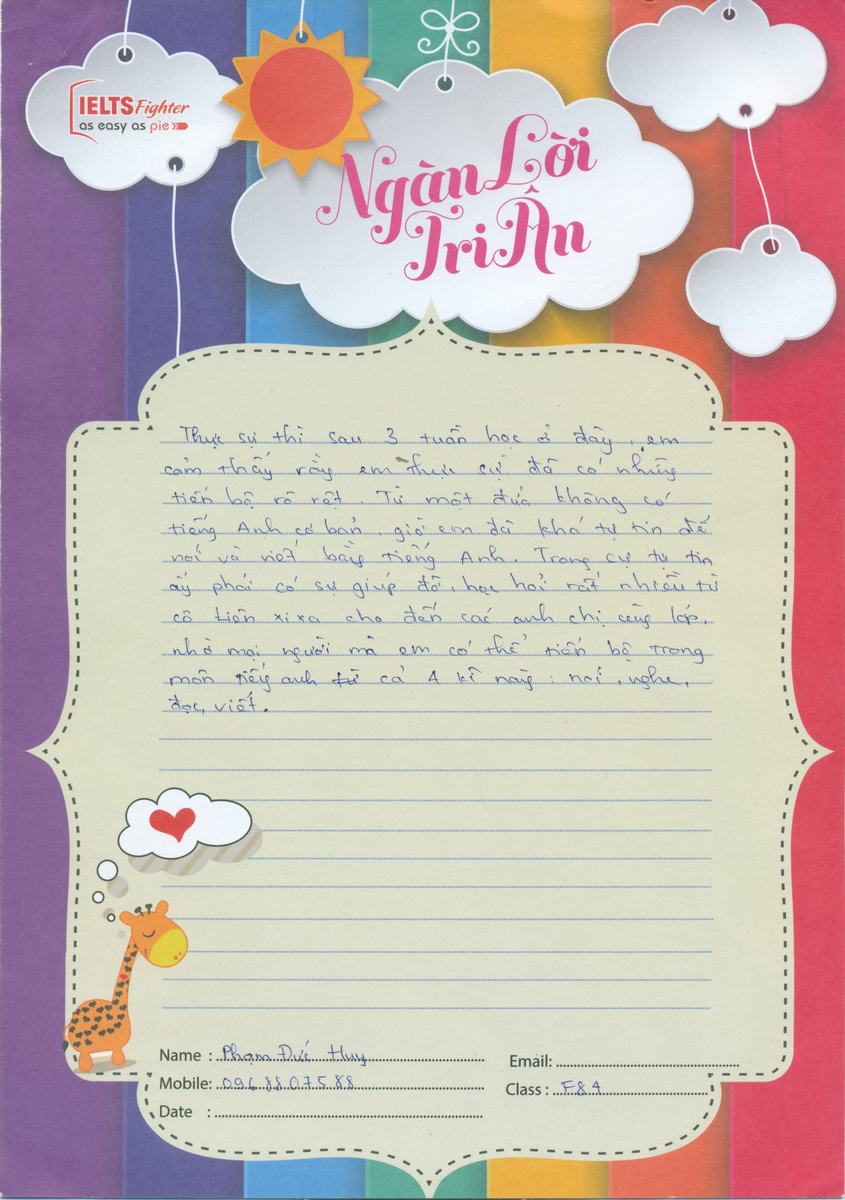 IELTS Fighter
as easy as pie
Ngàn Lời
Tri Ân
Thực sự thì sau 3 tuần học ở đây, em
cảm thấy rằng em thực sự đã có những
tiến bộ rõ rệt. Từ một đứa không có
tiếng Anh cơ bản, giờ em đã khá tự tin để
nói và viết bằng tiếng Anh. Trong sự tự tin
ấy phải có sự giúp đỡ, học hỏi rất nhiều từ
cô Liên xixa cho đến các anh chị cùng lớp,
nhờ mọi người mà em có thể tiến bộ trong
môn tiếng anh từ cả 4 kĩ năng : nói, nghe,
đọc, viết.
Name : Phạm Đức Huy
Email:
Mobile: 0968807588
Class : F84
Date :